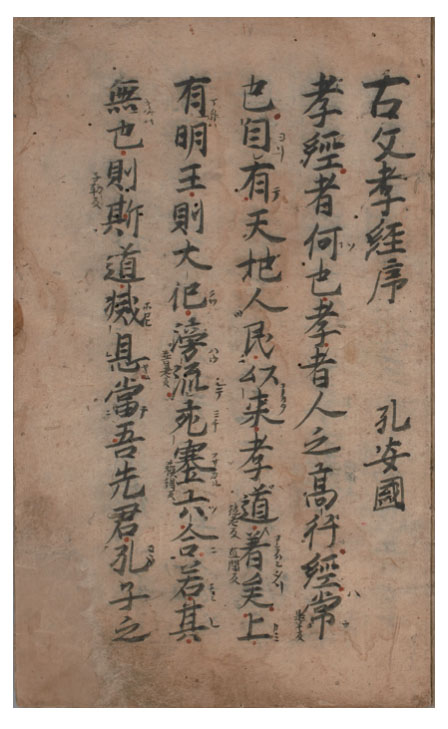 古文孝経序 孔安國
孝經者何也孝者人之高行經常
也自有天地人民以来孝道著矣上
有明王則大化滂流充塞六合若其
無也則斯道滅息當吾先君孔子之